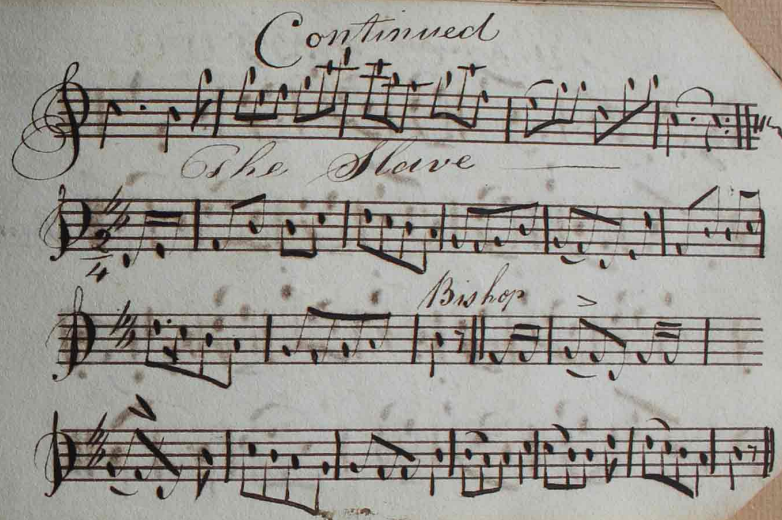 Continued
The Slave
2
4
Bishop